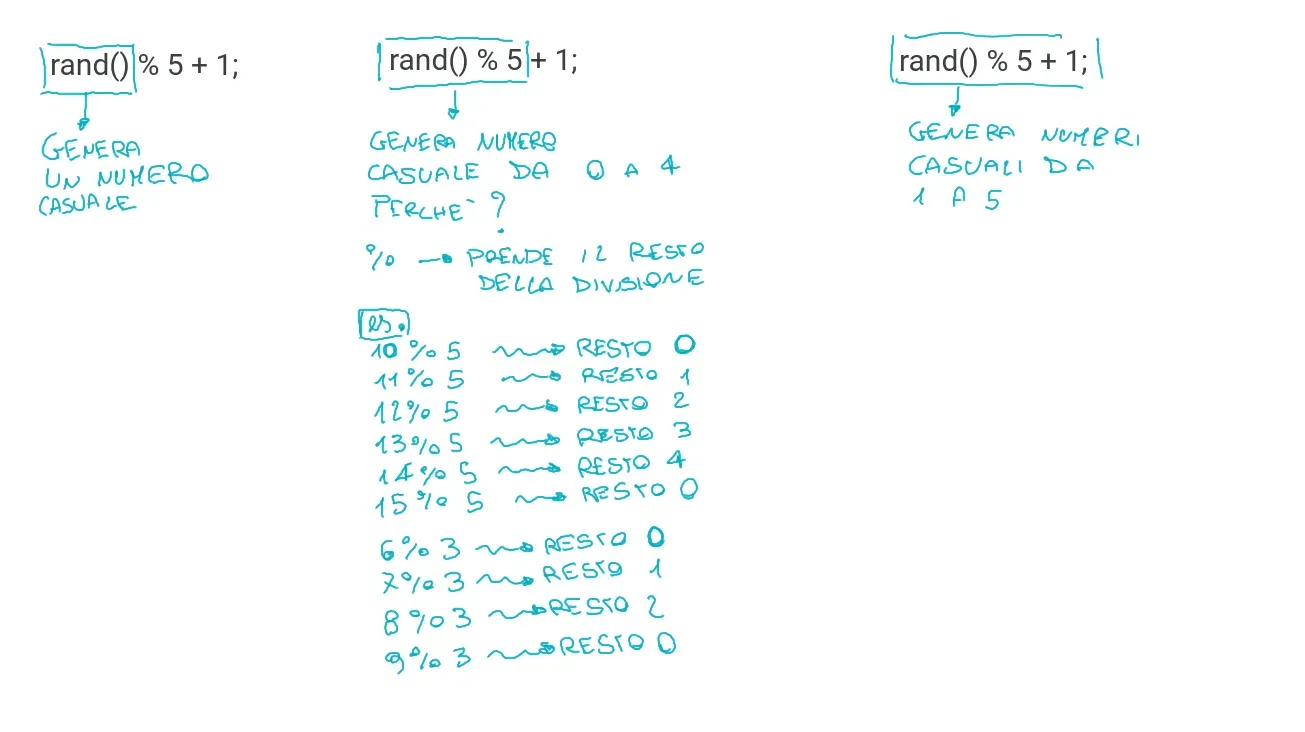 rand() % 5 + 1;
GENERA
UN NUMERO
CASUALE
rand() % 5 + 1;
GENERA NUMERO
CASUALE DA 0 A 4
PERCHE` ?
% → PRENDE IL RESTO
DELLA DIVISIONE
es.
10 % 5 → RESTO 0
11 % 5 → RESTO 1
12 % 5 → RESTO 2
13 % 5 → RESTO 3
14 % 5 → RESTO 4
15 % 5 → RESTO 0
6 % 3 → RESTO 0
7 % 3 → RESTO 1
8 % 3 → RESTO 2
9 % 3 → RESTO 0
rand() % 5 + 1;
GENERA NUMERI
CASUALI DA
1 A 5